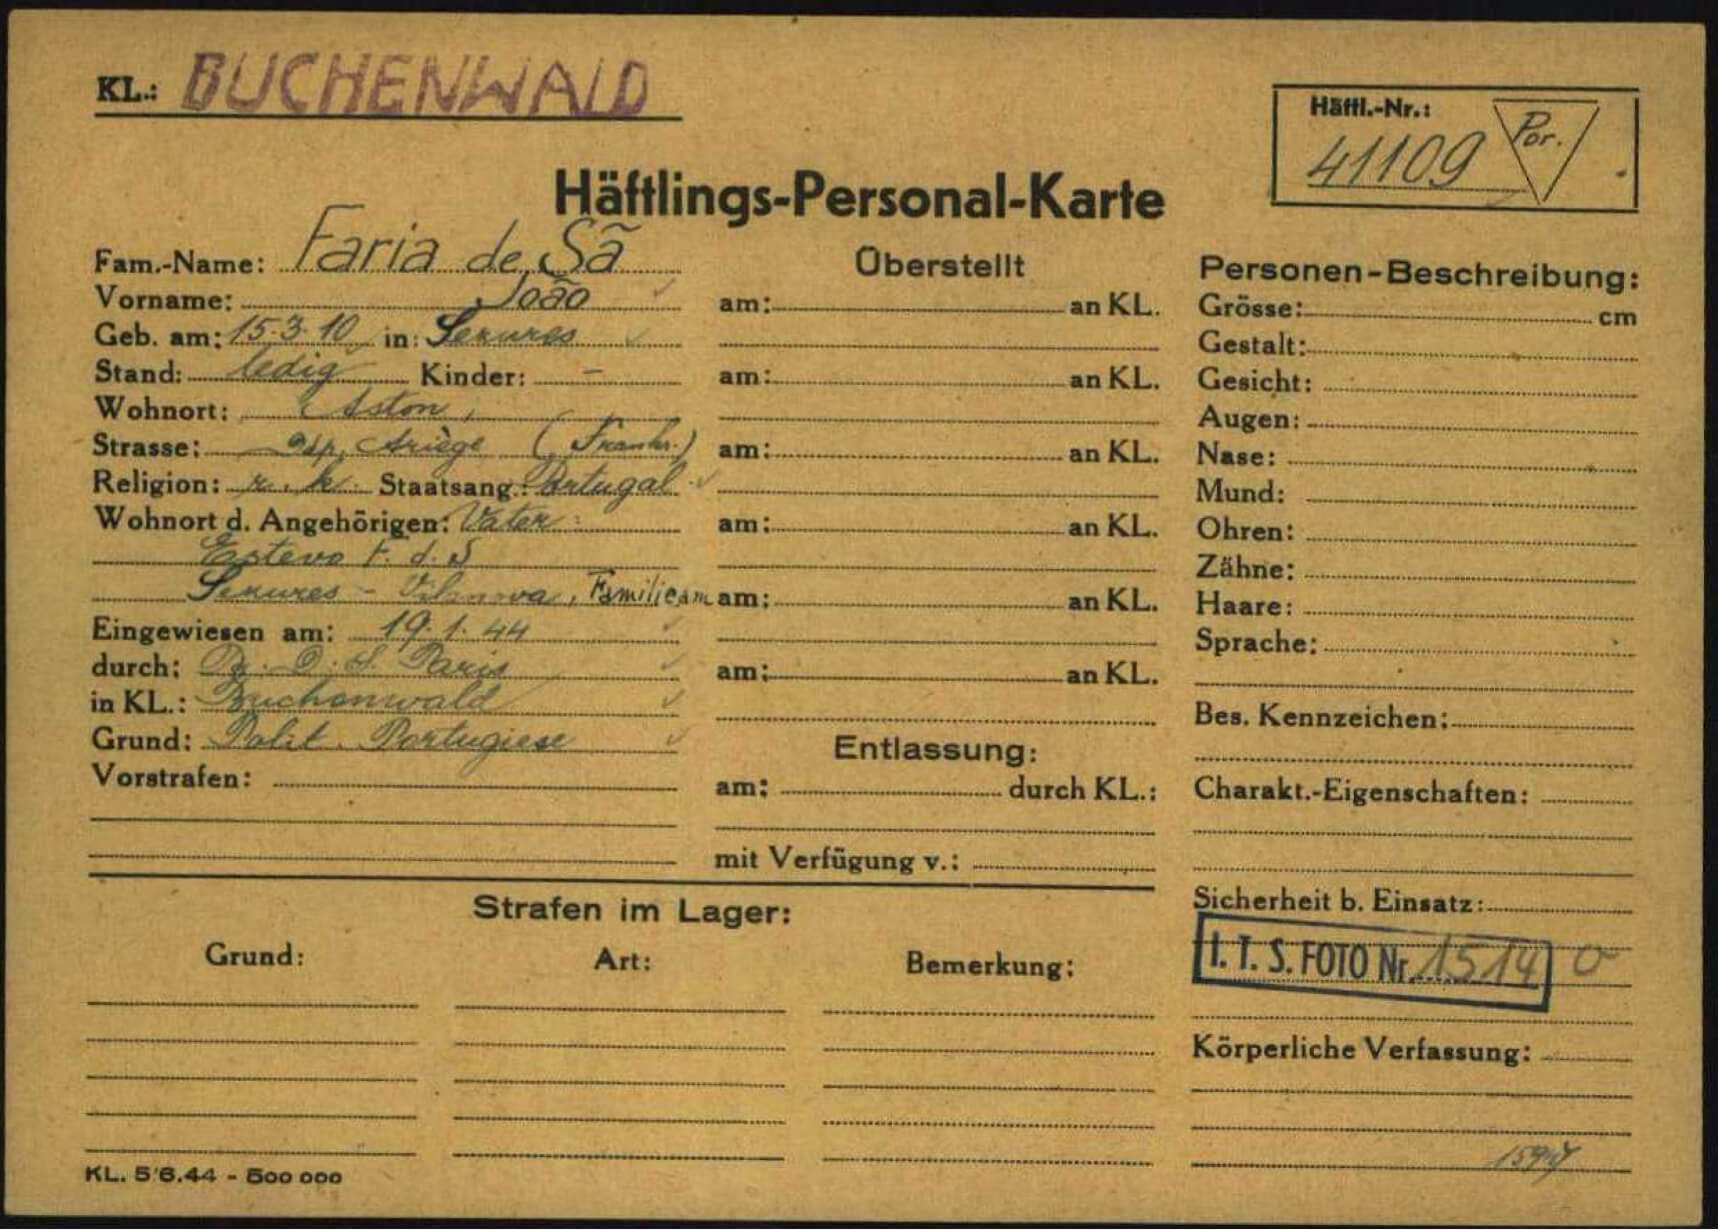 KL.: BUCHENWALD
Häftl.-Nr.:
41109 Por.
Häftlings-Personal-Karte
Fam.-Name: Faria de Sã
Vorname: João
Geb. am: 15.3.10 in:
Stand: ledig Kinder: -
Wohnort: Aston,
Strasse: Dep. Ariège (Frankr.)
Religion: r. k. Staatsang.: Portugal
Wohnort d. Angehörigen: Vater:
Estevo F. d. S
Familicam
Eingewiesen am: 19.1.44
durch: Paris
in KL.: Buchenwald
Grund: Polit. Portugiese
Vorstrafen:
Überstellt
am: an KL.
am: an KL.
am: an KL.
am: an KL.
am: an KL.
am: an KL.
Entlassung:
am: durch KL.:
mit Verfügung v.:
Personen-Beschreibung:
Grösse: cm
Gestalt:
Gesicht:
Augen:
Nase:
Mund:
Ohren:
Zähne:
Haare:
Sprache:
Bes. Kennzeichen:
Charakt.-Eigenschaften:
Sicherheit b. Einsatz:
I. T. S. FOTO Nr. 1514
Körperliche Verfassung:
Strafen im Lager:
Grund: Art: Bemerkung:
KL. 5/6.44 - 500 000